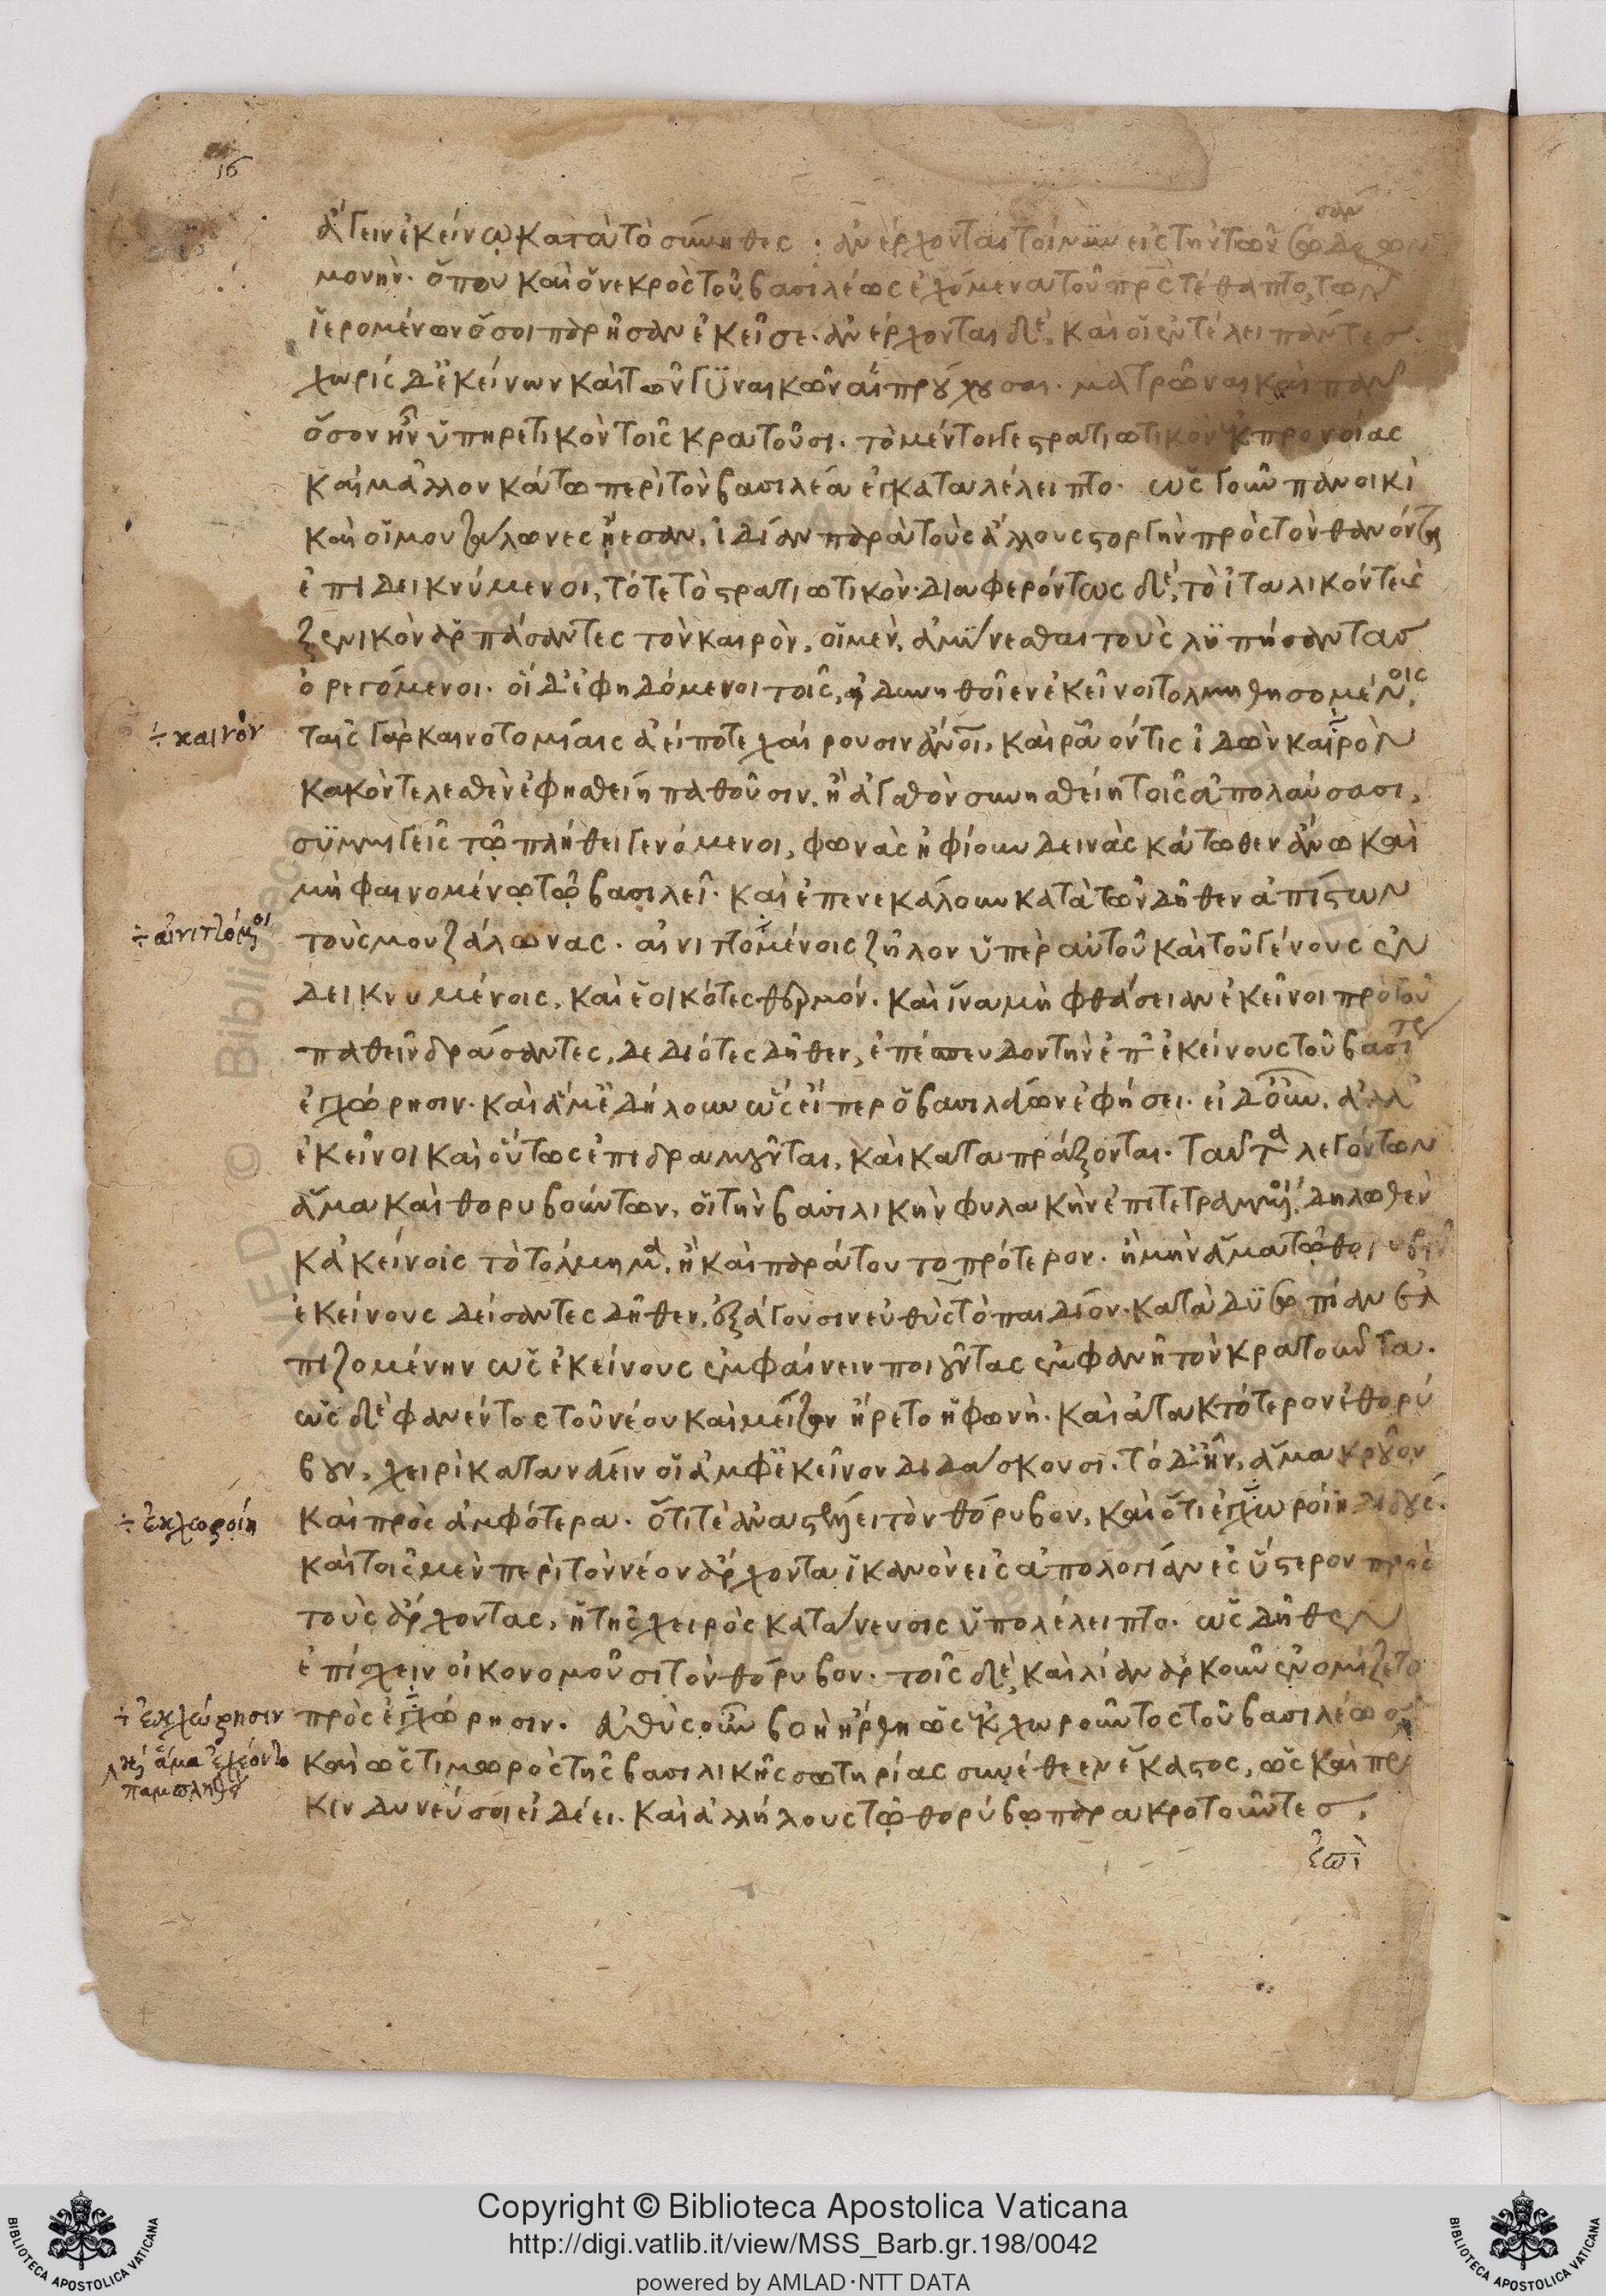 16
ἄγειν ἐκείνῳ κατὰ τὸ σύνηθες· ἀνέρχονται τοίνυν εἰς τὴν τῶν Σωσάνδρων
μονὴν· ὅπου καὶ ὁ νεκρὸς τοῦ βασιλέως ἐχόμενα τοῦ πρς τέθαπτο, τῶν
ἱερομένων ὅσοι παρῆσαν ἐκεῖσε· ἀνέρχονται δὲ, καὶ οἱ ἐν τέλει πάντες.
χωρὶς δ' ἐκείνων καὶ τῶν γυναικῶν αἱ προύχουσαι· ματρῶναι καὶ πᾶν
ὅσον ἦν ὑπηρετικὸν τοῖς κρατοῦσι· τὸ μέντοιγε στρατιωτικὸν ἐκ προνοίας
καὶ μᾶλλον κάτω περὶ τὸν βασιλέα ἐγκαταλέλειπτο· ὡς γοῦν πανοικὶ
καὶ οἱ μουζάλωνες ᾔεσαν, ἰδίαν παρὰ τοὺς ἄλλους στοργὴν πρὸς τὸν θανόντα
ἐπιδεικνύμενοι, τότε τὸ στρατιωτικὸν· διαφερόντως δὲ, τὸ ἰταλικόν τε καὶ
ξενικὸν ἁρπάσαντες τὸν καιρὸν, οἱ μὲν, ἀμύνεσθαι τοὺς λυπήσαντας
ὀρεγόμενοι· οἱ δ' ἐφηδόμενοι τοῖς, εἰ δυνηθοῖεν ἐκεῖνοι τολμηθησομένοις,
÷ καινόν
ταῖς γὰρ καινοτομίαις ἀείποτε χαίρουσιν ἄνοι, καὶ ῥᾷον τίς ἰδὼν καιρὸν
κακὸν τελεσθὲν ἐφησθείη παθοῦσιν, ἢ ἀγαθὸν συνησθείη τοῖς ἀπολαύσασι,
συμμιγεῖς τῷ πλήθει γενόμενοι, φωνὰς ἠφίουν δεινὰς κάτωθεν ἄνω καὶ
μὴ φαινομένῳ τῷ βασιλεῖ· καὶ ἐπενεκάλουν κατὰ τῶν δῆθεν ἀπίστων
÷ αἰνιττόμενοι
τοὺς μουζάλωνας· αἰνιττομένοις ζῆλον ὑπὲρ αὐτοῦ καὶ τοῦ γένους ἐν
δεικνυμένοις, καὶ ἐοικότες θερμόν· καὶ ἵνα μὴ φθάσειαν ἐκεῖνοι πρὸ τοῦ
παθεῖν δράσαντες, δεδιότες δῆθεν, ἐπέσπευδον τὴν ἐπ' ἐκείνους τοῦ βασι
ἐγχώρησιν· καὶ ἅμ' ἐδήλουν ὡς εἴπερ ὁ βασιλεύων ἐφήσει· εἰ δ' οὖν, ἀλλ'
ἐκεῖνοι καὶ οὕτως ἐπιδραμοῦνται, καὶ καταπράξονται· ταῦτα λεγόντων
ἅμα καὶ θορυβούντων, οἱ τὴν βασιλικὴν φυλακὴν ἐπιτετραμμένοι, δηλωθὲν
κἀκείνοις τὸ τόλμημα, ἢ καὶ παράτου τὸ πρότερον· ἦ μὴν ἅμα τῷ θορυβεῖν
ἐκείνους δείσαντες δῆθεν, ἐξάγουσιν εὐθὺς τὸ παιδίον· κατὰ δυσωπίαν ἐλ
πιζομένην ὡς ἐκείνους ἐμφαίνειν ποιοῦντας ἐμφανῆ τὸν κρατοῦντα.
ὡς δὲ φανέντος τοῦ νέου καὶ μεῖζον ᾔρετο ἡ φωνὴ· καὶ ἀτακτότερον ἐθορύ
βουν, χειρὶ κατανεύειν οἱ ἀμφ' ἐκεῖνον διδάσκουσι· τὸ δ' ἦν, ἅμα κρῦον
÷ ἐκχωροίη
καὶ πρὸς ἀμφότερα· ὅτι τὲ ἀναστήσει τὸν θόρυβον, καὶ ὅτι ἐγχωροίη
καὶ τοῖς μὲν περὶ τὸν νέον ἄρχοντα ἱκανὸν εἰς ἀπολογίαν ἐς ὕστερον πρὸς
τοὺς ἄρχοντας, ἡ τῆς χειρὸς κατάνευσις ὑπολέλειπτο· ὡς δῆθεν
ἐπίσχειν οἰκονομοῦσι τὸν θόρυβον· τοῖς δὲ, καὶ λίαν ἀρκοῦν ἐνομίζετο
÷ ἐκχώρησιν
πρὸς ἐγχώρησιν· εὐθὺς οὖν βοὴ ἤρθη ὡς ἐκχωροῦντος τοῦ βασιλέως
καὶ ἅμα ἐχέοντο
παμπληθεὶ
καὶ ὡς τιμωρὸς τῆς βασιλικῆς σωτηρίας συνέθεεν ἕκαστος, ὡς καὶ προ
κινδυνεύσοι εἰ δέει· καὶ ἀλλήλους τῷ θορύβῳ παρακροτοῦντες,
ἐπὶ
Copyright © Biblioteca Apostolica Vaticana
http://digi.vatlib.it/view/MSS_Barb.gr.198/0042
powered by AMLAD·NTT DATA